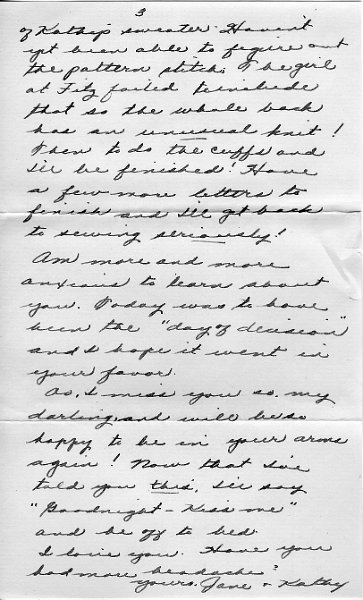 3
of Kathy's sweater. Haven't
yet been able to figure out
the pattern stitch. The girl
at Fitz failed to include
that so the whole back
has an unusual knit!
Then to do the cuffs and
I'll be finished! Have
a few more letters to
finish and I'll get back
to sewing seriously!
Am more and more
anxious to learn about
you. Today was to have
been the "day of decision"
and I hope it went in
your favor.
I miss you so, my
darling, and will be so
happy to be in your arms
again! Now that I've
told you this, I'll say
"Goodnight - Kiss me"
and be off to bed.
I love you. Have you
had more headache?
Yours, Jane & Kathy